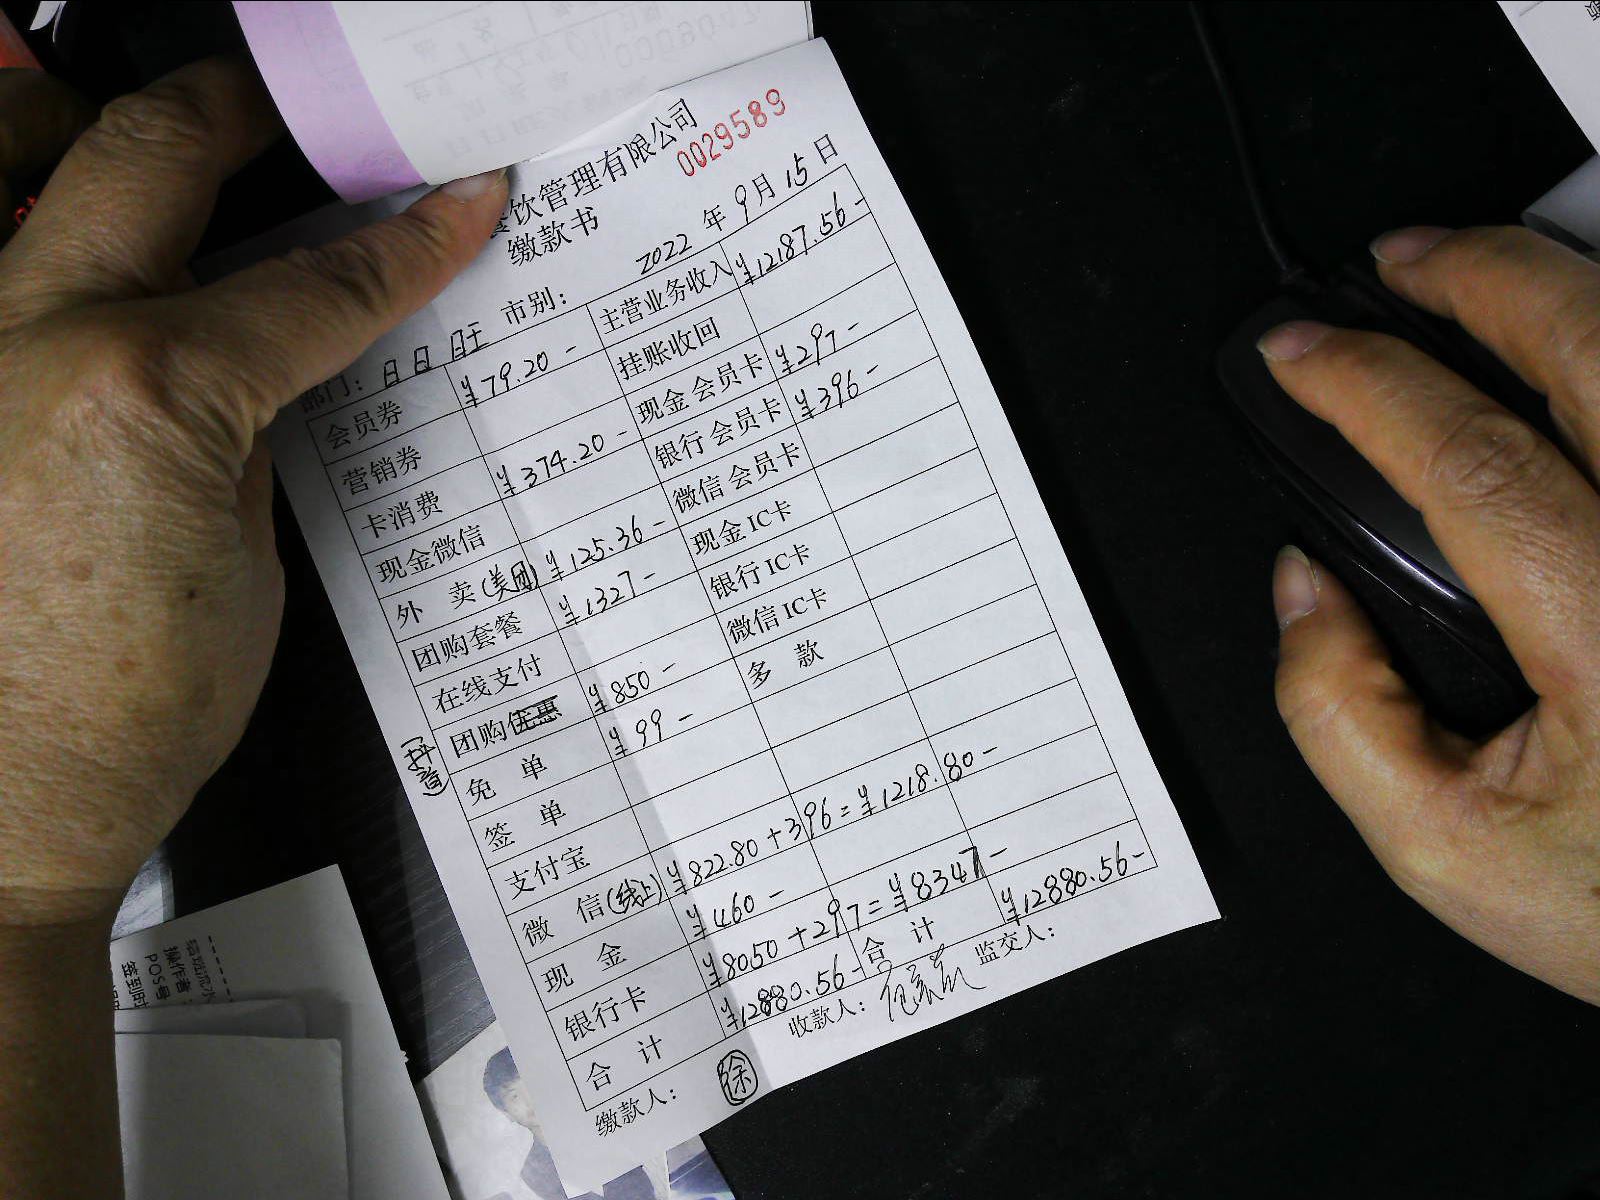 餐饮管理有限公司
0029589
缴款书
2022 年 9 月 15 日
部门：日日旺 市别：
会员券 ¥79.20 - 主营业务收入 ¥12187.56 -
营销券 挂账收回
卡消费 ¥374.20 - 现金会员卡 ¥297 -
现金微信 银行会员卡 ¥396 -
外 卖(美团) ¥125.36 - 微信会员卡
团购套餐 ¥1327 - 现金IC卡
在线支付 银行IC卡
团购优惠 ¥850 - 微信IC卡
(抖音)
免 单 ¥99 - 多 款
签 单
支付宝
微 信(线上) ¥822.80 + 396 = ¥1218.80 -
现 金 ¥460 -
银行卡 ¥8050 + 297 = ¥8347 -
合 计 ¥12880.56 - 合 计 ¥12880.56 -
缴款人： 徐 收款人： 监交人：
操作者：
POS号
签到时